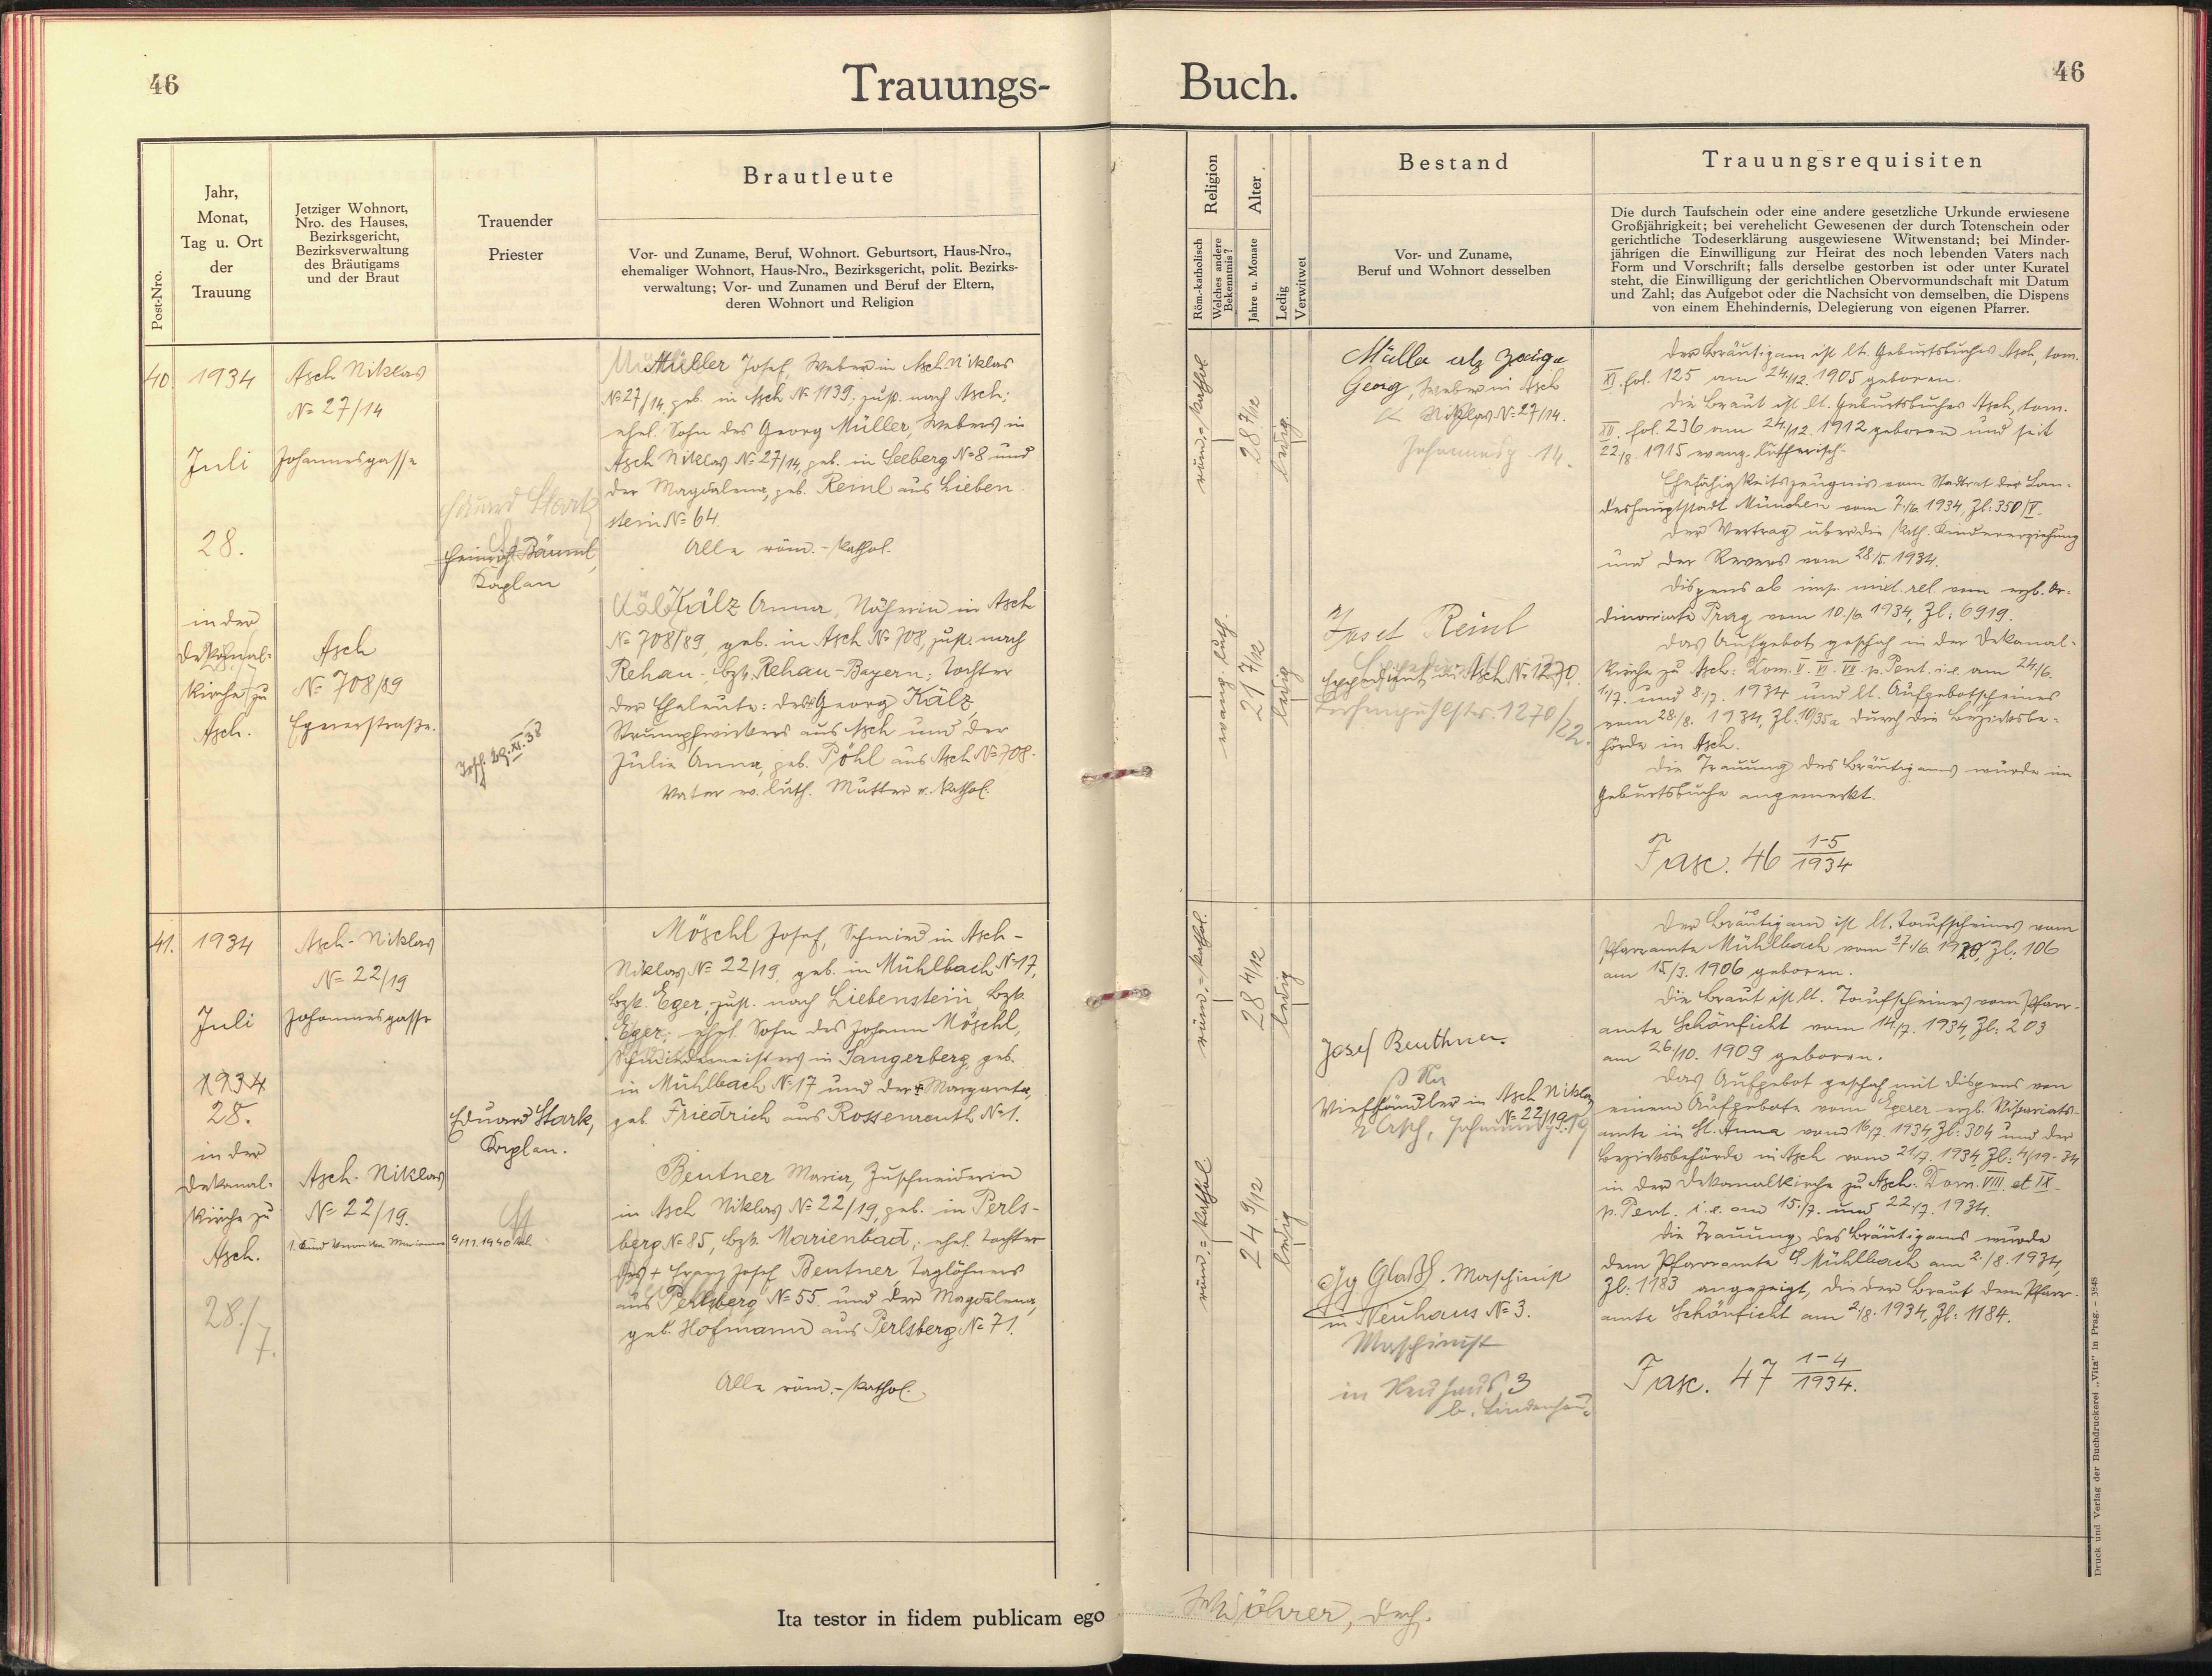 46
Trauungs-
Post-Nro.
Jahr,
Monat,
Tag u. Ort
der
Trauung
Jetziger Wohnort,
Nro. des Hauses,
Bezirksgericht,
Bezirksverwaltung
des Bräutigams
und der Braut
Trauender
Priester
Brautleute
Vor- und Zuname, Beruf, Wohnort. Geburtsort, Haus-Nro.,
ehemaliger Wohnort, Haus-Nro., Bezirksgericht, polit. Bezirks-
verwaltung; Vor- und Zunamen und Beruf der Eltern,
deren Wohnort und Religion
40.
1934
Juli
28.
in der
Dekanal-
kirche zu
Asch.
Asch Niklas
№ 27/14
Johannesgasse
Asch
№ 708/89
Egererstraße.
Eduard Stark
Heinrich Bäuml,
Kaplan
Müller Josef, Weber in Asch Niklas
№ 27/14, geb. in Asch № 1139. zust. nach Asch;
ehel. Sohn des Georg Müller, Webers in
Asch Niklas № 27/14, geb. in Seeberg № 8 und
der Magdalena, geb. Reinl aus Lieben-
stein № 64.
Alle röm.-kathol.
Kälz Anna, Näherin in Asch
№ 708/89, geb. in Asch № 708, zust. nach
Rehau, bzk. Rehau-Bayern; Tochter
der Eheleute: des Georg Kälz,
Strumpfwirkers aus Asch und der
Julie Anna, geb. Pöhl aus Asch № 708.
Vater ev. luth. Mutter r. kathol.
41.
1934
Juli
1934
28.
in der
Dekanal-
kirche zu
Asch.
28./7.
Asch-Niklas
№ 22/19
Johannesgasse
Asch-Niklas
№ 22/19.
Eduard Stark,
Kaplan.
Möschl Josef, Schmied in Asch-
Niklas № 22/19, geb. in Mühlbach № 17,
bzk. Eger, zust. nach Liebenstein, bzk.
Eger; ehel. Sohn des Johann Möschl,
Schmiedemeisters in Sangerberg, geb.
in Mühlbach № 17 und der Margareta,
geb. Friedrich aus Rossenreuth № 1.
Beutner Maria, Zuschneiderin
in Asch Niklas № 22/19, geb. in Perls-
berg № 85, bzk. Marienbad; ehel. Tochter
des + Franz Josef Beutner, Taglöhners
aus Perlsberg № 55. und der Magdalena,
geb. Hofmann aus Perlsberg № 71.
Alle röm.-kathol.
Ita testor in fidem publicam ego
46
Buch.
Religion
Röm.-katholisch
Welches andere
Bekenntnis?
Alter
Jahre u. Monate
Ledig
Verwitwet
Bestand
Vor- und Zuname,
Beruf und Wohnort desselben
Trauungsrequisiten
Die durch Taufschein oder eine andere gesetzliche Urkunde erwiesene
Großjährigkeit; bei verehelicht Gewesenen der durch Totenschein oder
gerichtliche Todeserklärung ausgewiesene Witwenstand; bei Minder-
jährigen die Einwilligung zur Heirat des noch lebenden Vaters nach
Form und Vorschrift; falls derselbe gestorben ist oder unter Kuratel
steht, die Einwilligung der gerichtlichen Obervormundschaft mit Datum
und Zahl; das Aufgebot oder die Nachsicht von demselben, die Dispens
von einem Ehehindernis, Delegierung von eigenen Pfarrer.
röm.-kathol.
28 7/12
ledig
Georg, Weber in Asch
Niklas № 27/14.
Johannesg. 14.
evang. luth.
21 7/12
ledig
Josef Reinl
Expedient in Asch № 1270.
Der Bräutigam ist lt. Geburtsbuches Asch, tom.
XI. fol. 125 am 24./12. 1905 geboren.
Die Braut ist lt. Geburtsbuches Asch, tom.
XII. fol. 236 am 24./12. 1912 geboren und seit
22/8. 1915 evang. lutherisch.
Ehefähigkeitszeugnis vom Stadtrat der Lan-
deshauptstadt München vom 7./6. 1934, Zl: 350/V.
Der Vertrag über die kath. Kindererziehung
und der Revers vom 28/5. 1934.
Dispens ab imp. mixt. rel. vom erzb. Or-
dinariate Prag vom 10./6. 1934, Zl: 6919.
Das Aufgebot geschah in der Dekanal-
kirche zu Asch: Dom. V. VI. VII. p. Pent. i. e. am 24/6.
1/7. und 8/7. 1934 und lt. Aufgebotscheines
vom 28./8. 1934, Zl. 10/35a durch die Bezirksbe-
hörde in Asch.
Die Trauung des Bräutigams wurde im
Geburtsbuche angemerkt.
Fasc. 46 1-5/1934
röm.-kathol.
28 4/12
ledig
Josef Beuthner.
Viehhändler in Asch Niklas
№ 22/19
röm.-kathol.
24 9/12
ledig
Jg Glaßl. Maschinist
in Neuhaus № 3.
Maschinist
in Neuhaus 3
b. Lindenhau
Der Bräutigam ist lt. Taufscheines vom
Pfarramte Mühlbach vom 27./6. 1920, Zl: 106
am 15/3. 1906 geboren.
Die Braut ist lt. Taufscheines vom Pfarr-
amte Schönficht vom 14./7. 1934, Zl: 203
am 26/10. 1909 geboren.
Das Aufgebot geschah mit Dispens von
einem Aufgebote vom Egerer erzb. Vikariats-
amte in St. Anna vom 16/7. 1934, Zl: 304 und der
Bezirksbehörde in Asch vom 21/7. 1934 Zl: 4/19-34
in der Dekanalkirche zu Asch: Dom. VIII. et IX.
p. Pent. i. e. am 15./7. und 22./7. 1934.
Die Trauung des Bräutigams wurde
dem Pfarramte Mühlbach am 2./8. 1934,
Zl: 1183 angezeigt, die der Braut dem Pfarr-
amte Schönficht am 2/8. 1934, Zl: 1184.
Fasc. 47 1-4/1934.
Druck und Verlag der Buchdruckerei „Vita" in Prag. – 3848